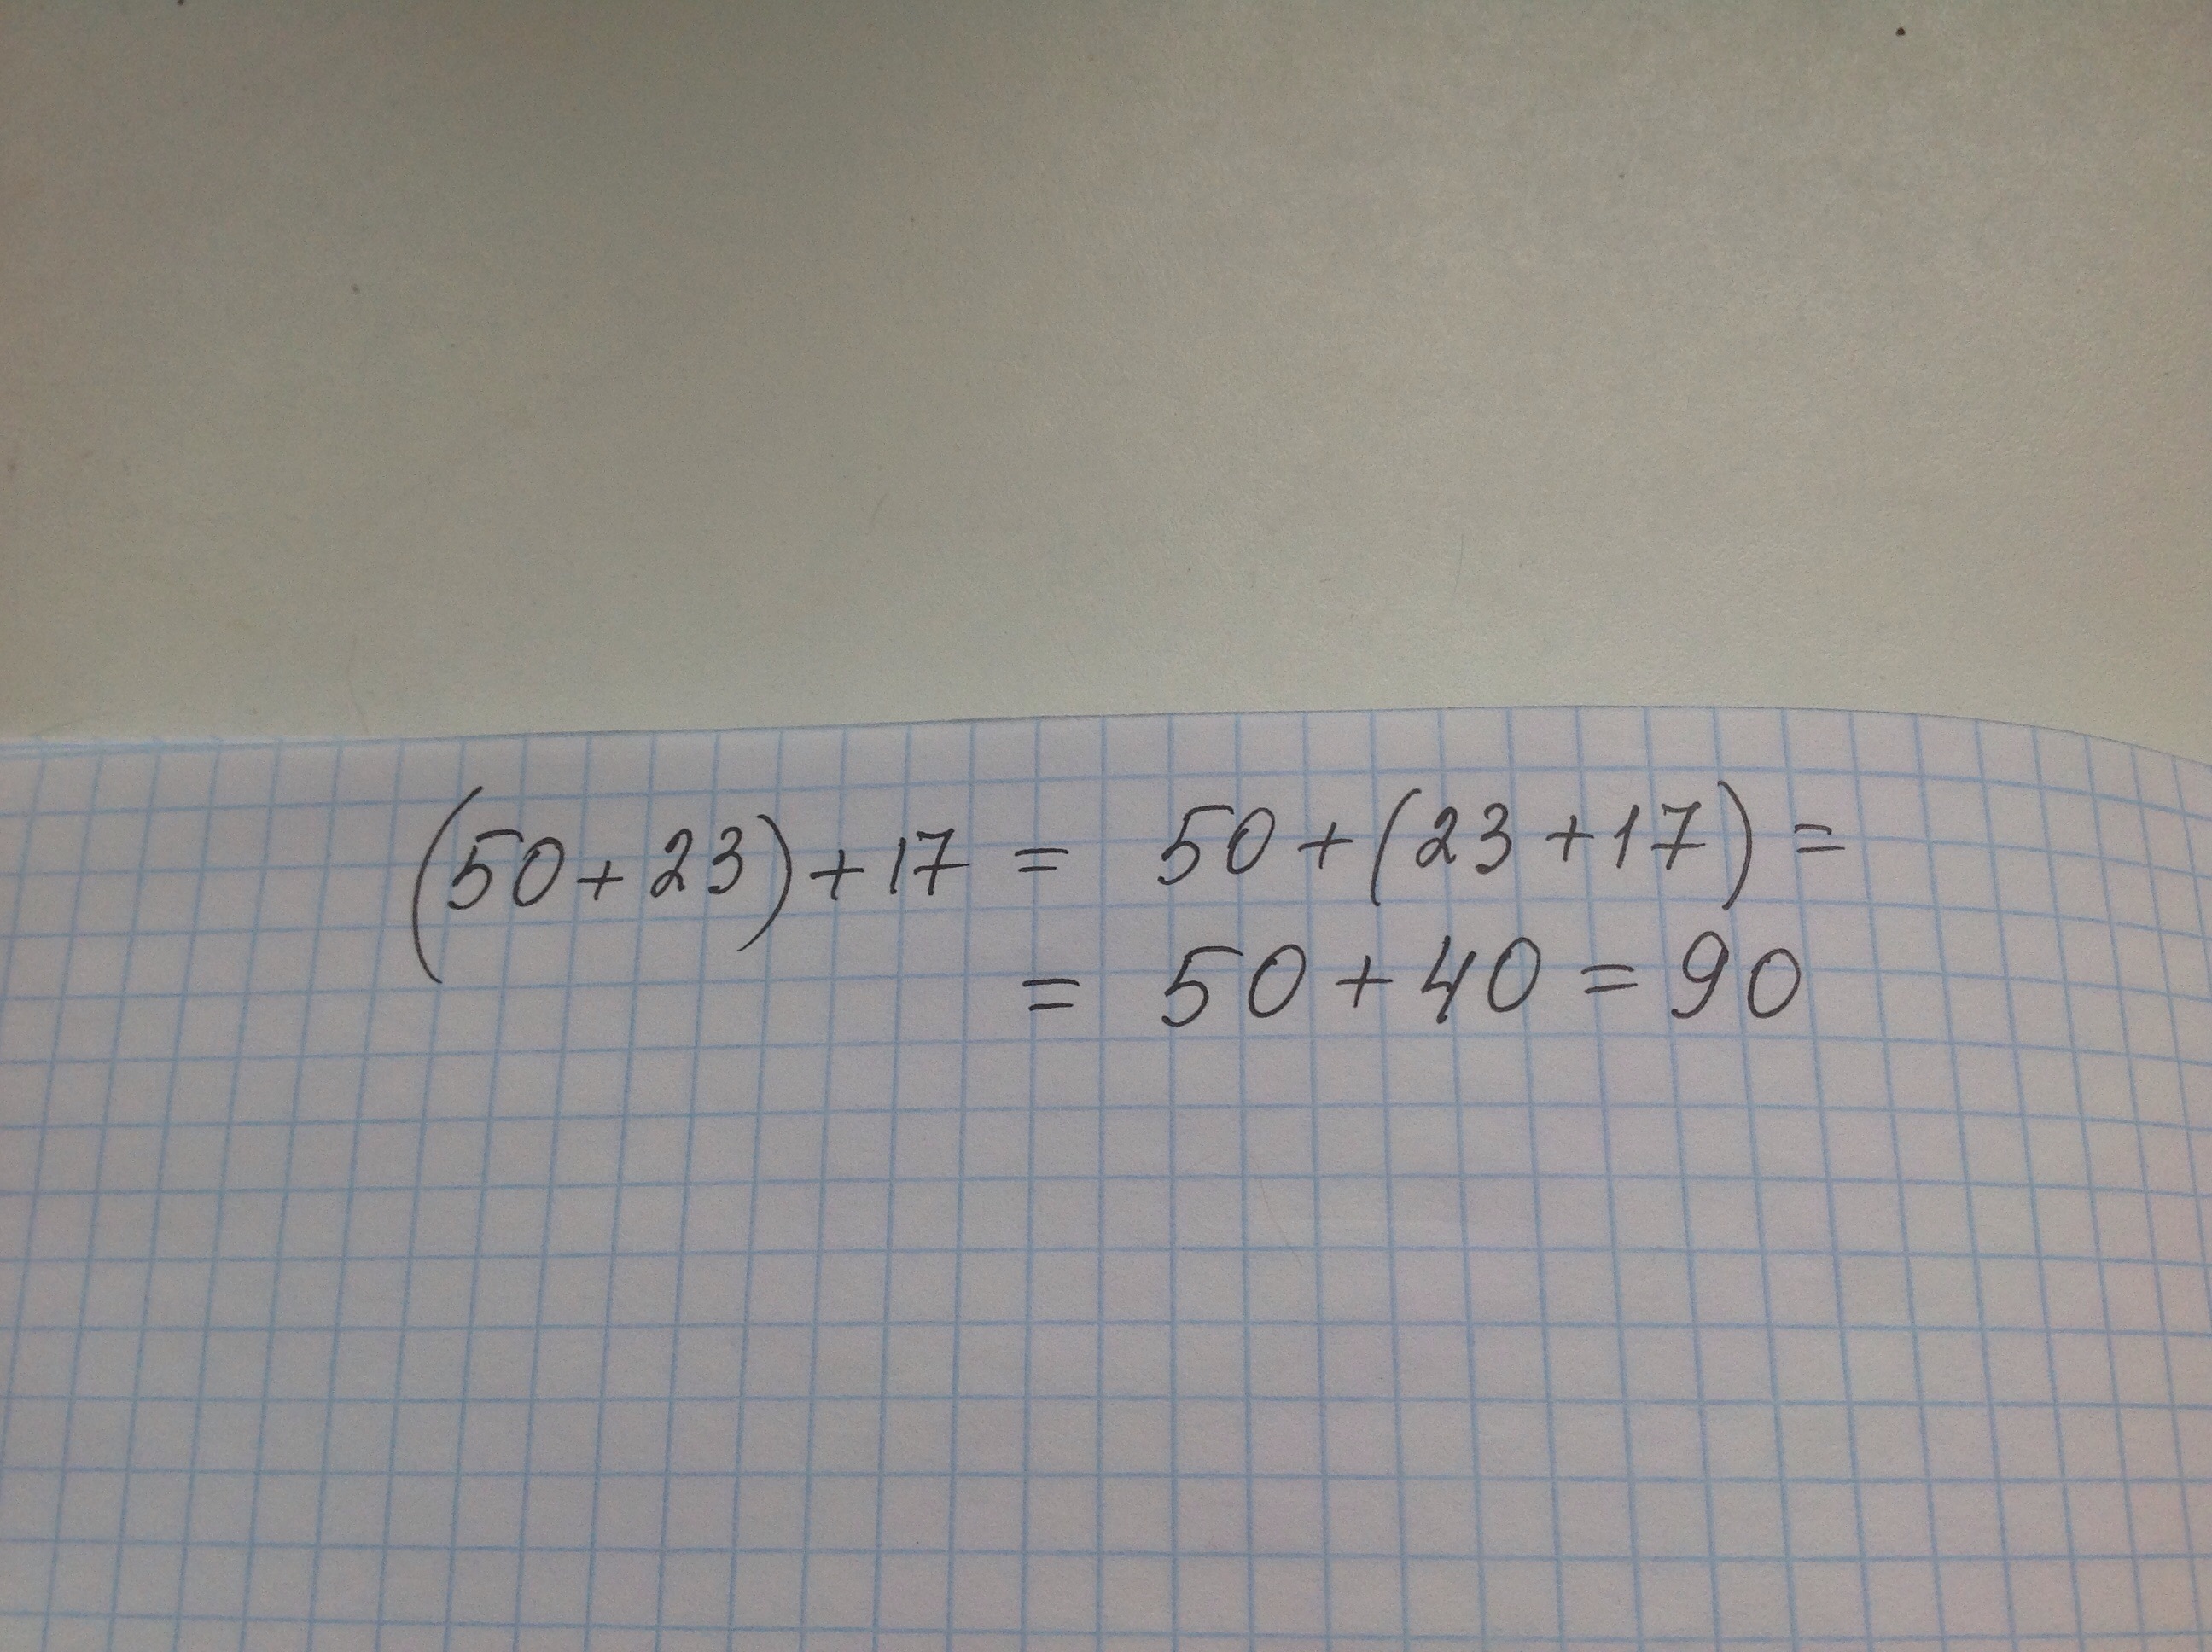 (50+23)+17 = 50+(23+17) =
= 50+40 = 90